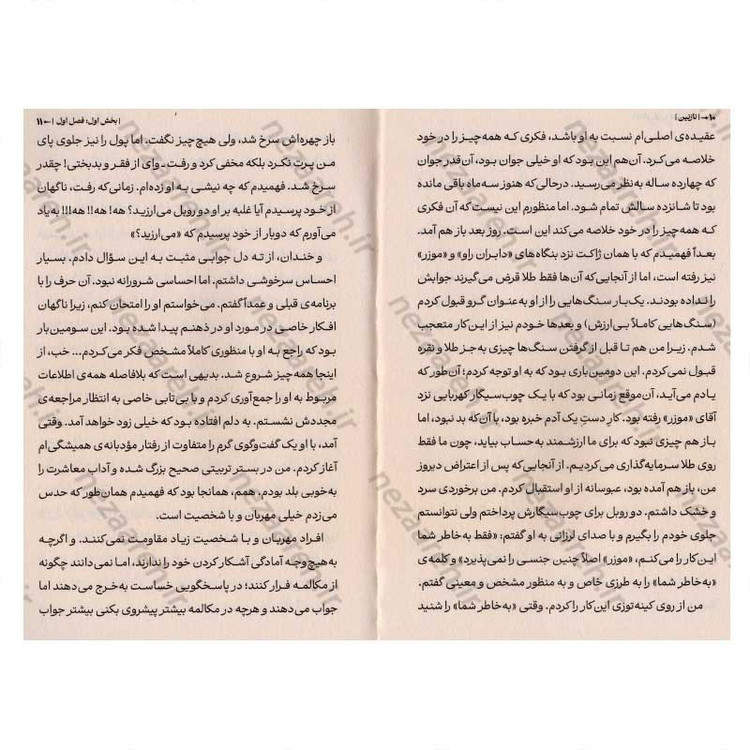 ۱۰ ← | نازنین |
عقیده‌ی اصلی‌ام نسبت به او باشد، فکری که همه چیز را در خود
خلاصه می‌کرد. آن‌هم این بود که او خیلی جوان بود، آن‌قدر جوان
که چهارده ساله به‌نظر می‌رسید. درحالی‌که هنوز سه ماه باقی مانده
بود تا شانزده سالش تمام شود. اما منظورم این نیست که آن فکری
که همه چیز را در خود خلاصه می‌کند این است. روز بعد باز هم آمد.
بعداً فهمیدم که با همان ژاکت نزد بنگاه‌های «دابران راو» و «موزر»
نیز رفته است، اما از آنجایی که آن‌ها فقط طلا قرض می‌گیرند جوابش
را نداده بودند. یک‌بار سنگ‌هایی را از او به‌عنوان گرو قبول کردم
(سنگ‌هایی کاملاً بی‌ارزش) و بعدها خودم نیز از این کار متعجب
شدم. زیرا من هم تا قبل از گرفتن سنگ‌ها چیزی به‌جز طلا و نقره
قبول نمی‌کردم. این دومین باری بود که به او توجه کردم؛ آن‌طور که
یادم می‌آید، آن‌موقع زمانی بود که با یک چوب‌سیگار کهربایی نزد
آقای «موزر» رفته بود. کار دستِ یک آدم خبره بود، با آن‌که بد نبود، اما
باز هم چیزی نبود که برای ما ارزشمند به‌حساب بیاید، چون ما فقط
روی طلا سرمایه‌گذاری می‌کردیم. از آنجایی که پس از اعتراض دیروز
من، باز هم آمده بود، عبوسانه از او استقبال کردم. من برخوردی سرد
و خشک داشتم. دو روبل برای چوب‌سیگارش پرداختم ولی نتوانستم
جلوی خودم را بگیرم و با صدای لرزانی به او گفتم: «فقط به‌خاطر شما
این کار را می‌کنم، «موزر» اصلاً چنین جنسی را نمی‌پذیرد» و کلمه‌ی
«به‌خاطر شما» را به طرزی خاص و به منظور مشخص و معینی گفتم.
من از روی کینه‌توزی این کار را کردم. وقتی «به‌خاطر شما» را شنید
| بخش اول، فصل اول | ← ۱۱
باز چهره‌اش سرخ شد، ولی هیچ چیز نگفت. اما پول را نیز جلوی پای
من پرت نکرد بلکه مخفی کرد و رفت. وای از فقر و بدبختی! چقدر
سرخ شد. فهمیدم که چه نیشی به او زده‌ام. زمانی‌که رفت، ناگهان
از خود پرسیدم آیا غلبه بر او دو روبل می‌ارزید؟ هه! هه!! هه!!! به یاد
می‌آورم که دوبار از خود پرسیدم که «می‌ارزید؟»
و خندان، از ته دل جوابی مثبت به این سؤال دادم. بسیار
احساس سرخوشی داشتم. اما احساسی شرورانه نبود. آن حرف را با
برنامه‌ی قبلی و عمداً گفتم. می‌خواستم او را امتحان کنم، زیرا ناگهان
افکار خاصی در مورد او در ذهنم پیدا شده بود. این سومین بار
بود که راجع به او با منظوری کاملاً مشخص فکر می‌کردم... خب، از
اینجا همه چیز شروع شد. بدیهی است که بلافاصله همه‌ی اطلاعات
مربوط به او را جمع‌آوری کردم و با بی‌تابی خاصی به انتظار مراجعه‌ی
مجددش نشستم. به دلم افتاده بود که خیلی زود خواهد آمد. وقتی
آمد، با او یک گفت‌وگوی گرم را متفاوت از رفتار مؤدبانه‌ی همیشگی‌ام
آغاز کردم. من در بستر تربیتی صحیح بزرگ شده و آداب معاشرت را
به‌خوبی بلد بودم. همم، همانجا بود که فهمیدم همان‌طور که حدس
می‌زدم خیلی مهربان و با شخصیت است.
افراد مهربان و با شخصیت زیاد مقاومت نمی‌کنند. و اگرچه
به‌هیچ‌وجه آمادگی آشکار کردن خود را ندارند، اما نمی‌دانند چگونه
از مکالمه فرار کنند؛ در پاسخگویی خساست به‌خرج می‌دهند اما
جواب می‌دهند و هرچه در مکالمه بیشتر پیشروی بکنی بیشتر جواب
nezaareh.ir